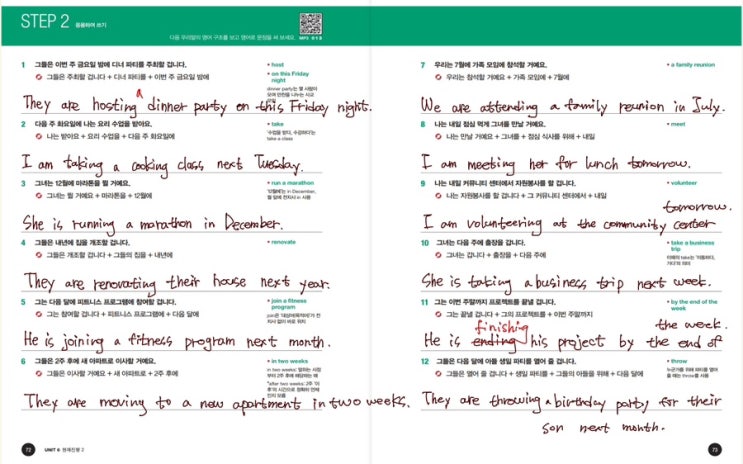 STEP 2 응용하여 쓰기
다음 우리말의 영어 구조를 보고 영어로 문장을 써 보세요. MP3 013
1 그들은 이번 주 금요일 밤에 디너 파티를 주최할 겁니다.
그들은 주최할 겁니다 + 디너 파티를 + 이번 주 금요일 밤에
• host
• on this Friday night
dinner party는 몇 사람이
모여 만찬을 나누는 사교
a
They are hosting dinner party on this Friday night.
2 다음 주 화요일에 나는 요리 수업을 받아요.
나는 받아요 + 요리 수업을 + 다음 주 화요일에
• take
'수업을 받다, 수강하다'는
take a class
I am taking a cooking class next Tuesday.
3 그녀는 12월에 마라톤을 뛸 거예요.
그녀는 뛸 거예요 + 마라톤을 + 12월에
• run a marathon
'12월에'는 in December,
월 앞에 전치사 in 사용
She is running a marathon in December.
4 그들은 내년에 집을 개조할 겁니다.
그들은 개조할 겁니다 + 그들의 집을 + 내년에
• renovate
They are renovating their house next year.
5 그는 다음 달에 피트니스 프로그램에 참여할 겁니다.
그는 참여할 겁니다 + 피트니스 프로그램에 + 다음 달에
• join a fitness program
He is joining a fitness program next month.
6 그들은 2주 후에 새 아파트로 이사할 거예요.
그들은 이사할 거예요 + 새 아파트로 + 2주 후에
• in two weeks
They are moving to a new apartment in two weeks.
72 UNIT 6 현재진행 2
7 우리는 7월에 가족 모임에 참석할 거예요.
우리는 참석할 거예요 + 가족 모임에 + 7월에
• a family reunion
We are attending a family reunion in July.
8 나는 내일 점심 먹게 그녀를 만날 거예요.
나는 만날 거예요 + 그녀를 + 점심 식사를 위해 + 내일
• meet
I am meeting her for lunch tomorrow.
9 나는 내일 커뮤니티 센터에서 자원봉사를 할 겁니다.
나는 자원봉사를 할 겁니다 + 그 커뮤니티 센터에서 + 내일
• volunteer
I am volunteering at the community center
tomorrow.
10 그녀는 다음 주에 출장을 갑니다.
그녀는 갑니다 + 출장을 + 다음 주에
• take a business trip
She is taking a business trip next week.
11 그는 이번 주말까지 프로젝트를 끝낼 겁니다.
그는 끝낼 겁니다 + 그의 프로젝트를 + 이번 주말까지
• by the end of the week
finishing
He is ending his project by the end of
the week.
12 그들은 다음 달에 아들 생일 파티를 열어 줄 겁니다.
그들은 열어 줄 겁니다 + 생일 파티를 + 그들의 아들을 위해 + 다음 달에
• throw
누군가를 위해 파티를 열어
줄 때는 throw를 사용
They are throwing a birthday party for their
son next month.
73